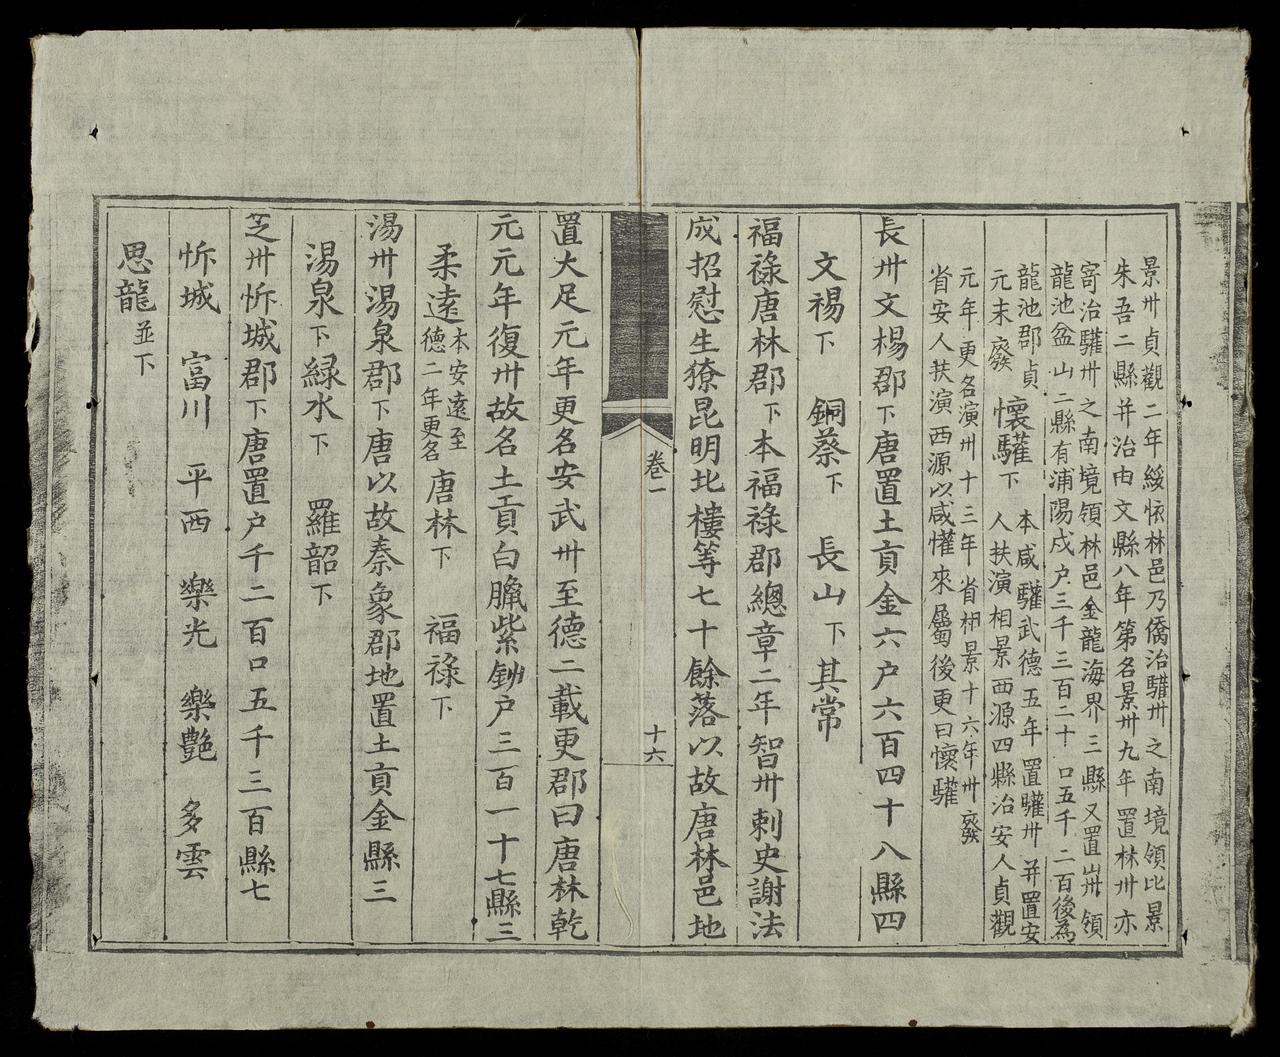 景卅貞觀二年綏懐林邑乃僑治驩卅之南境領比景
朱吾二縣并治由文縣八年第名景卅九年置林卅亦
寄治驩卅之南境領林邑金龍海界三縣又置㟁卅領
龍池盆山二縣有浦陽戍户三千三百二十口五千二百後為
龍池郡貞
元末廢
懷驩下
本咸驩武德五年置驩卅并置安
人扶演相景西源四縣治安人貞觀
元年更名演卅十三年省相景十六年卅廢
省安人扶演西源以咸懽來屬後更曰懷驩
長卅文楊郡下唐置土貢金六户六百四十八縣四
文楊下 銅蔡下 長山下其常
福祿唐林郡下本福祿郡總章二年智卅刺史謝法
成招慰生獠昆明北樓等七十餘落以故唐林邑地
卷一
十六
置大足元年更名安武卅至德二載更郡曰唐林乾
元元年復卅故名土貢白臘紫鉚户三百一十七縣三
柔遠本安遠至
德二年更名
唐林下 福祿下
湯卅湯泉郡下唐以故秦象郡地置土貢金縣三
湯泉下緑水下 羅韶下
芝卅忻城郡下唐置户千二百口五千三百縣七
忻城 富川 平西 樂光 樂艷 多雲
思龍並下